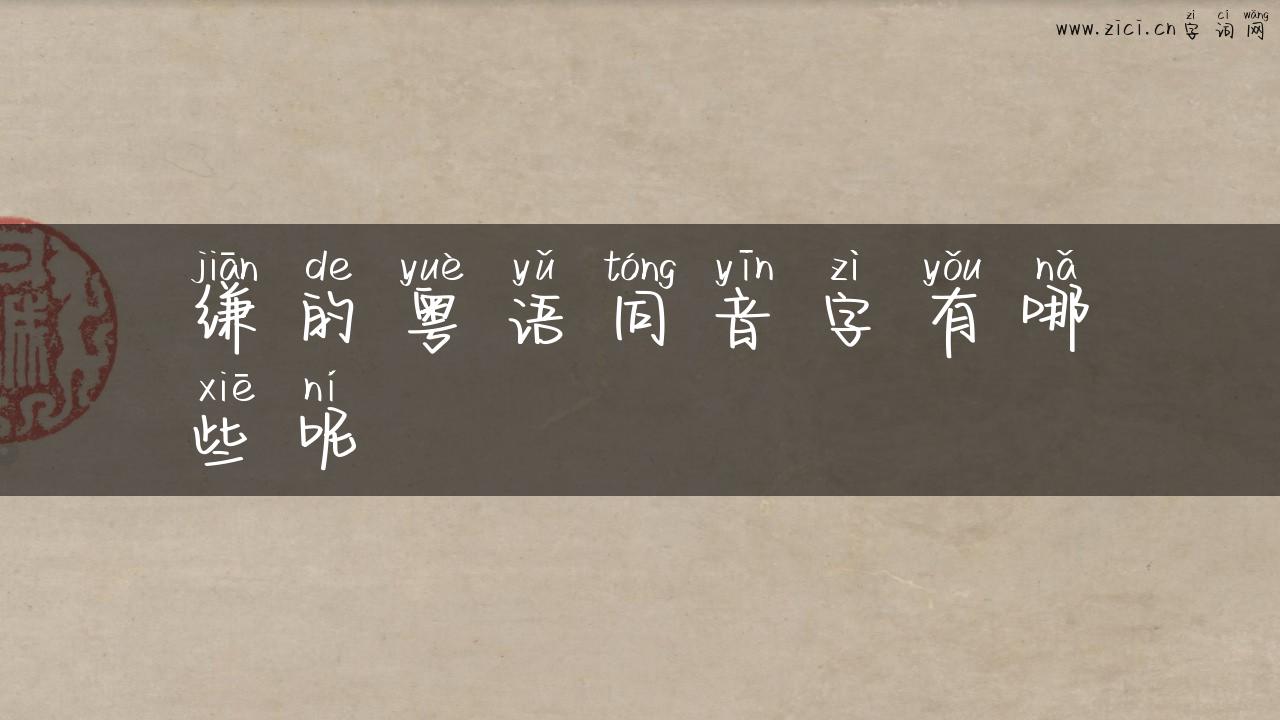 zì cí wǎng
www.zici.cn 字词网
jiān de yuè yǔ tóng yīn zì yǒu nǎ
缣的粤语同音字有哪
xiē ní
些呢